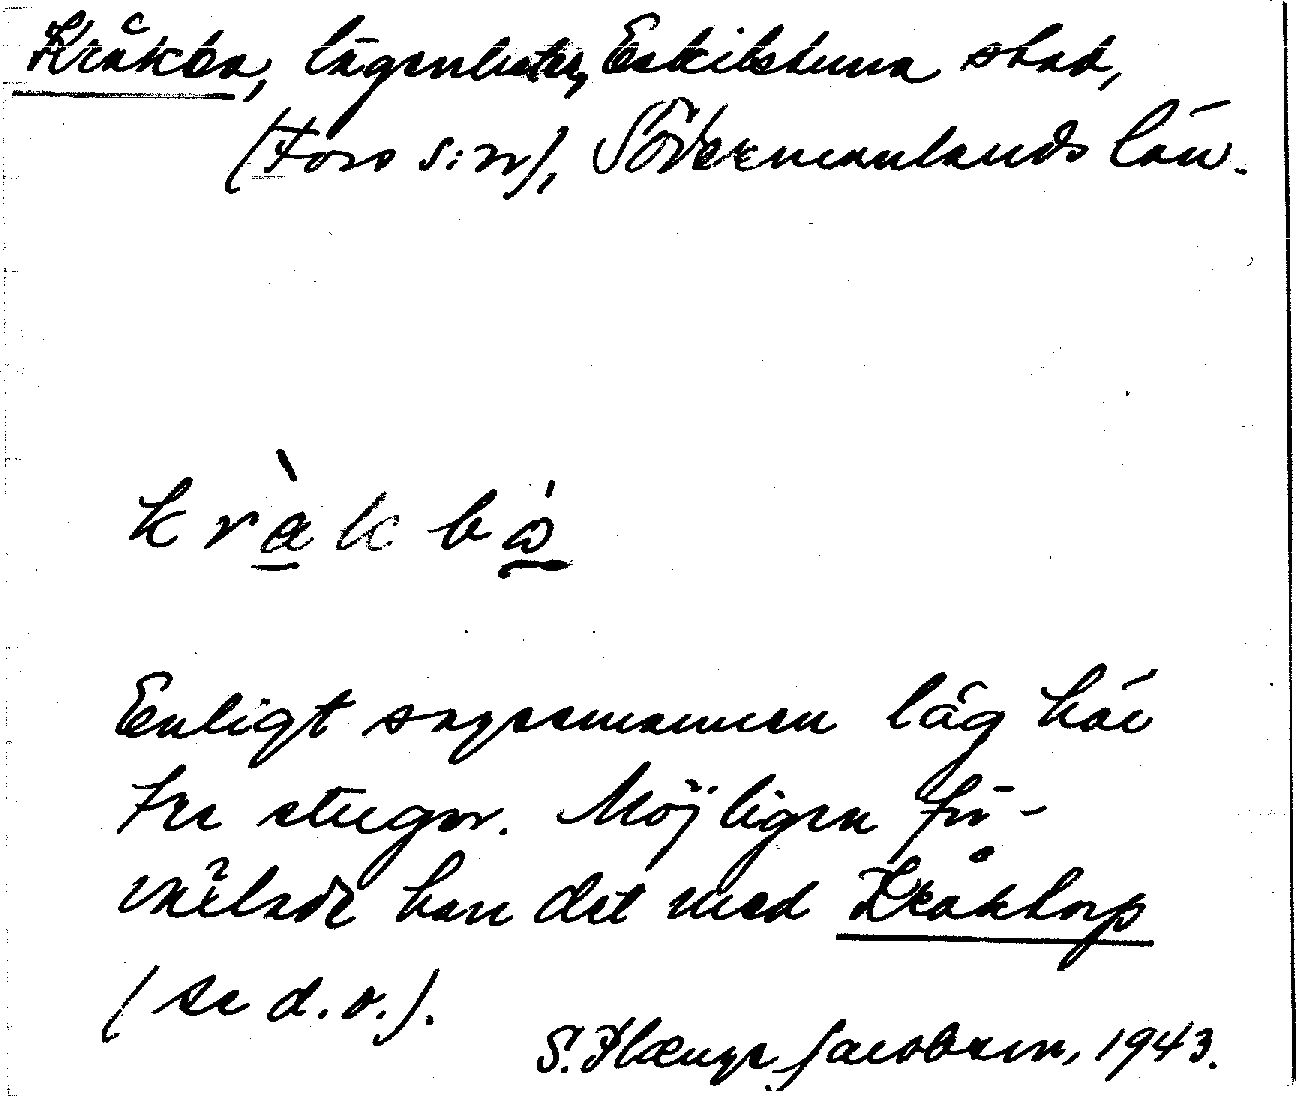 Kråkbo, lägenheter, Eskilstuna stad,
(Fors s:n), Södermanlands län.
kràkbó
Enligt sagesmannen låg här
tre stugor. Möjligen för-
växlade han det med Kråktorp
(se d.o.).
S. Flænge Jacobsen, 1943.